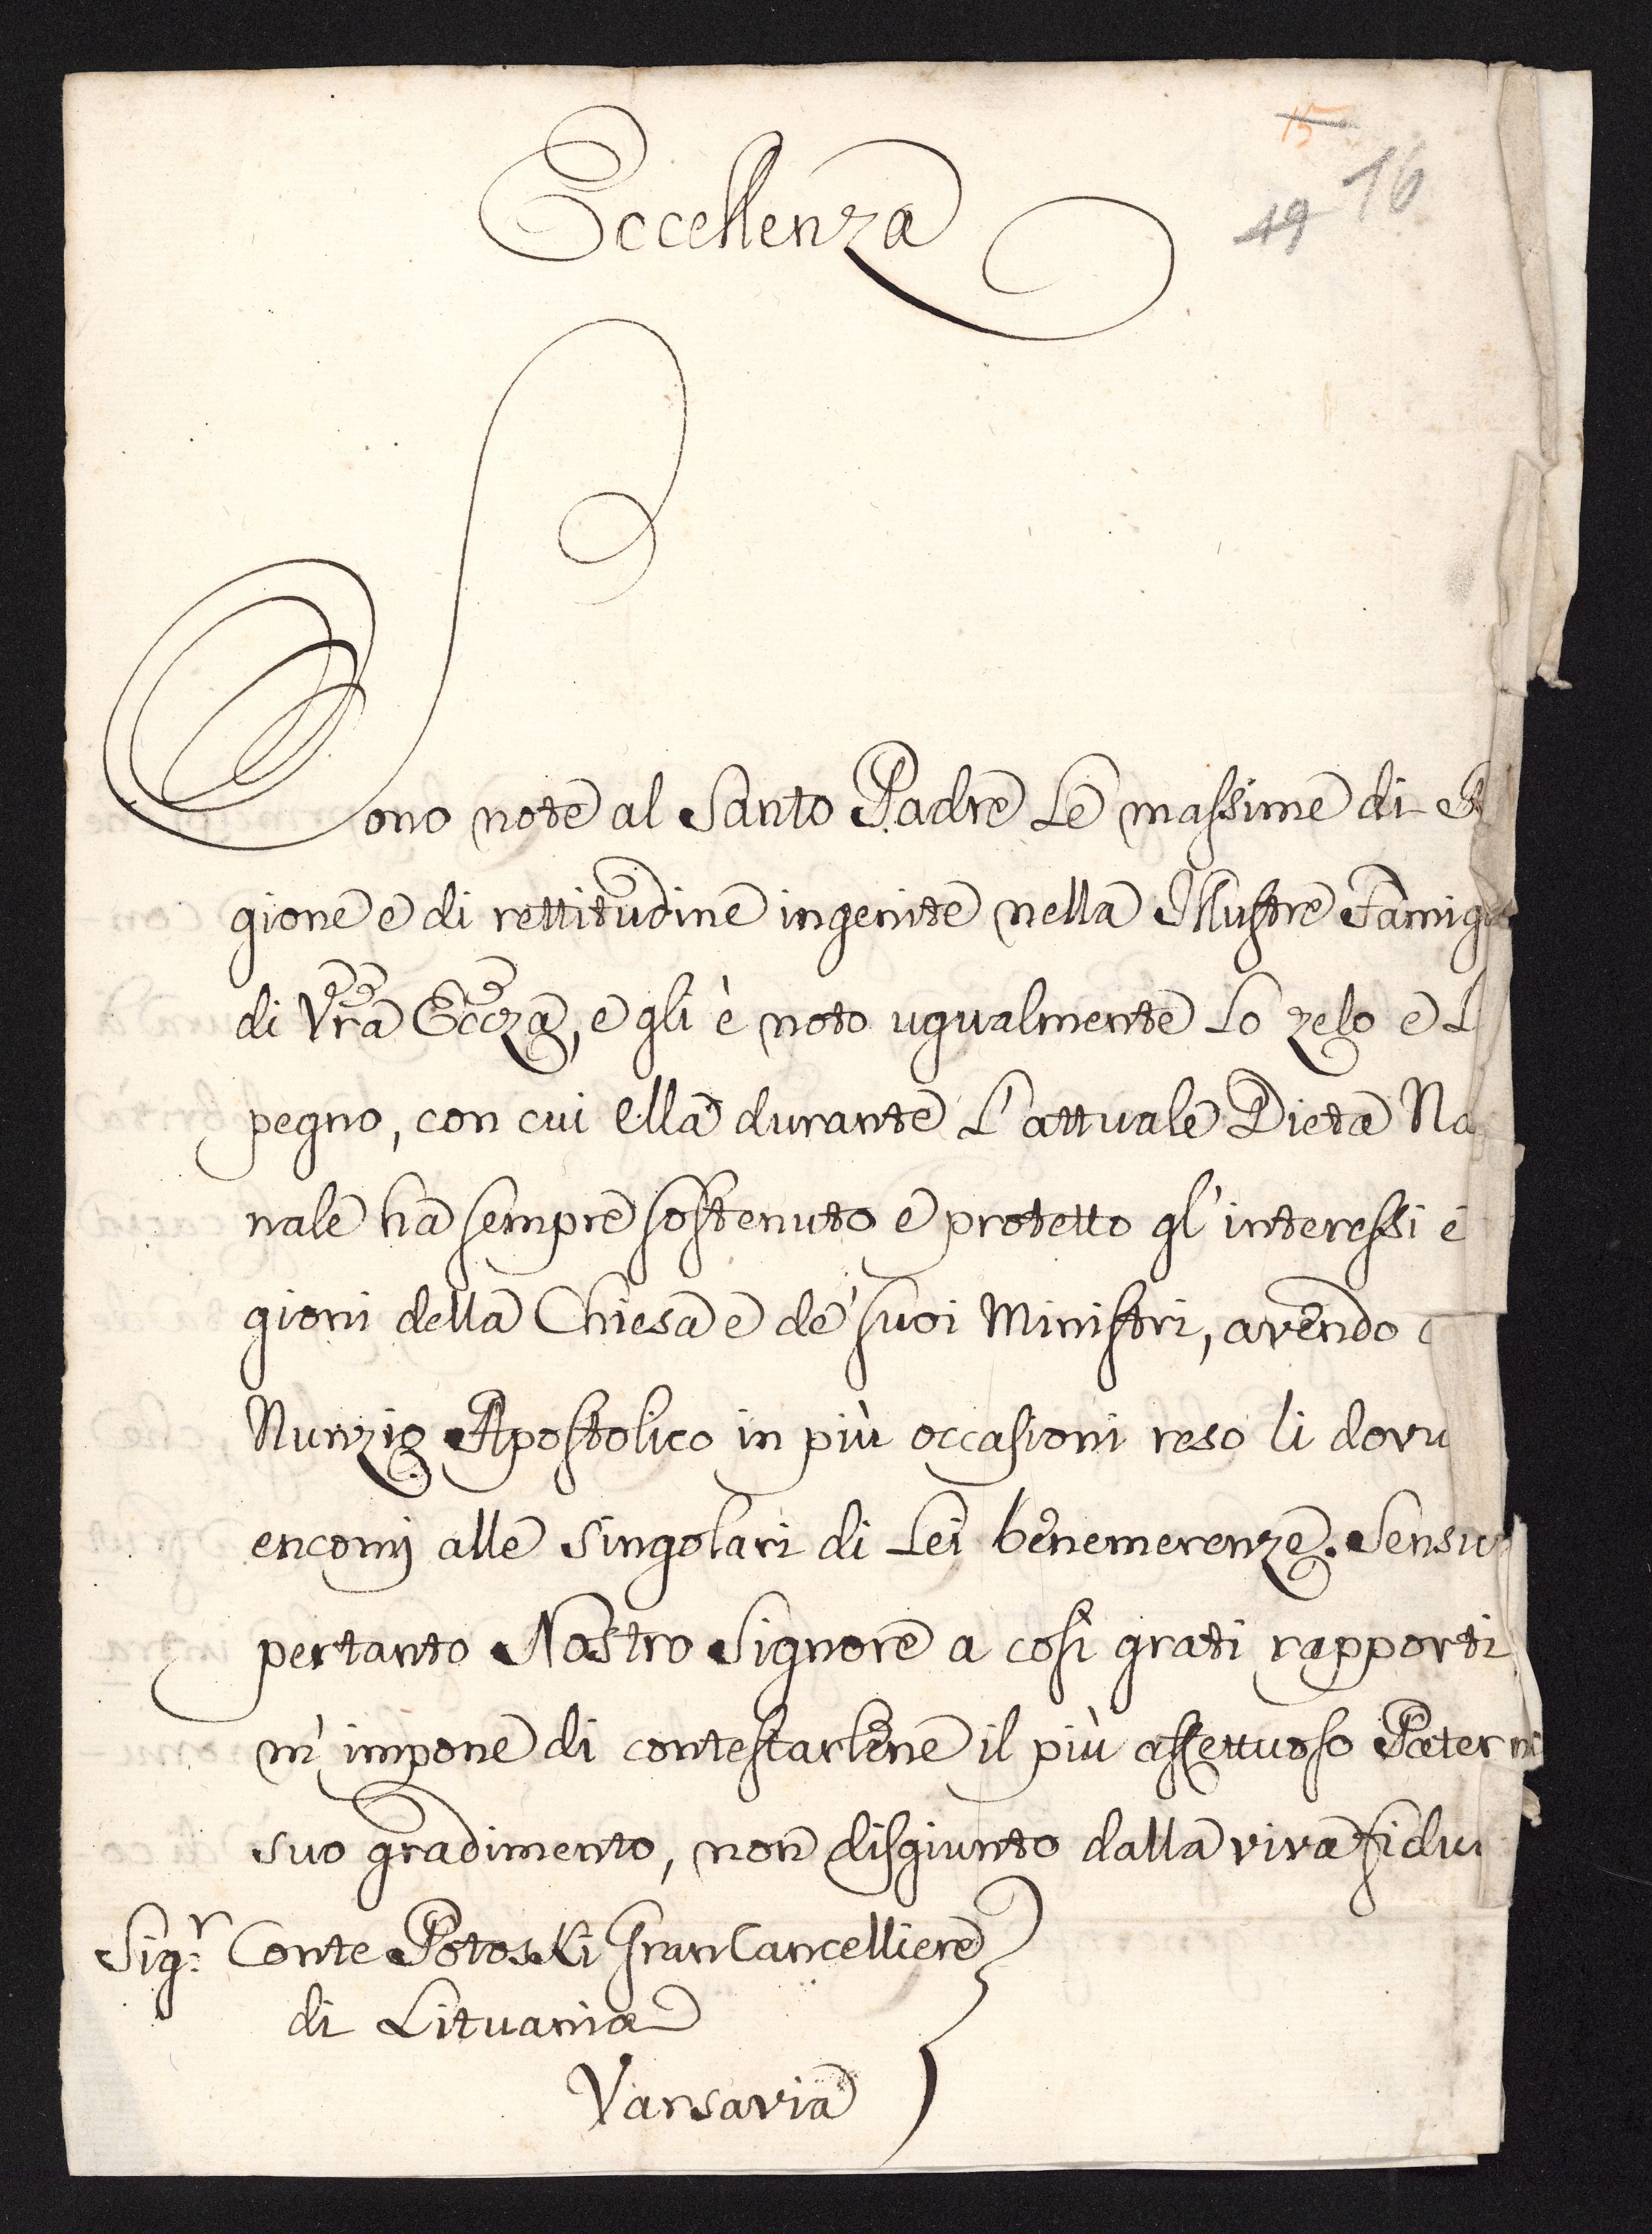 15
49 16
Eccellenza
Sono note al Santo Padre Le massime di
gione e di rettitudine ingenite nella Illustre Famig
di Vra Eccza, e gli è noto ugualmente Lo zelo e L
pegno, con cui ella durante L'attuale Dieta Na
nale ha sempre sostenuto e protetto gl'interessi e
gioni della Chiesa e de' suoi Ministri, avendo
Nunzio Apostolico in più occasioni reso li dovu
encomj alle singolari di Lei benemerenze. Sensi
pertanto Nostro Signore a così grati rapporti
m'impone di contestarlene il più affettuoso Patern
suo gradimento, non disgiunto dalla viva fidu
Sig.r Conte Potoski Gran Cancelliere
di Lituania
Varsavia